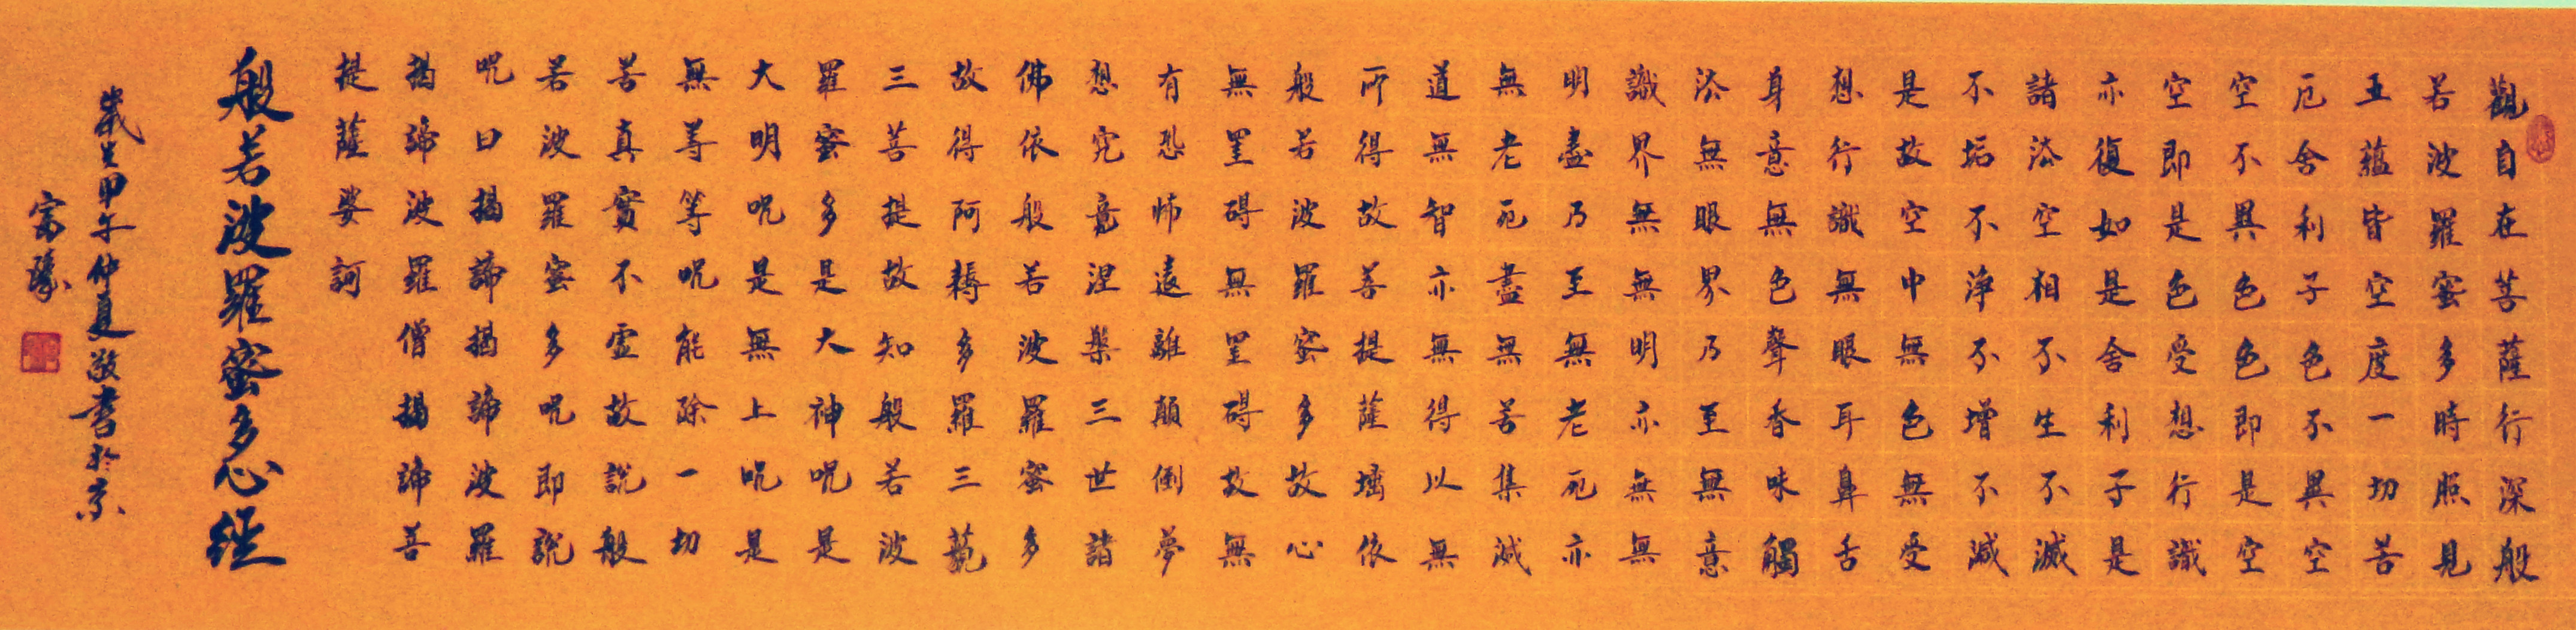 觀自在菩薩行深般
若波羅蜜多時照見
五蘊皆空度一切苦
厄舍利子色不異空
空不異色色即是空
空即是色受想行識
亦復如是舍利子是
諸法空相不生不滅
不垢不淨不增不減
是故空中無色無受
想行識無眼耳鼻舌
身意無色聲香味觸
法無眼界乃至無意
識界無無明亦無無
明盡乃至無老死亦
無老死盡無苦集滅
道無智亦無得以無
所得故菩提薩埵依
般若波羅蜜多故心
無罣碍無罣碍故無
有恐怖遠離顛倒夢
想究竟涅槃三世諸
佛依般若波羅蜜多
故得阿耨多羅三藐
三菩提故知般若波
羅蜜多是大神呪是
大明呪是無上呪是
無等等呪能除一切
苦真實不虛故說般
若波羅蜜多呪即說
呪曰揭諦揭諦波羅
揭諦波羅僧揭諦菩
提薩婆訶
般若波羅蜜多心經
歲甲午仲夏敬書於京